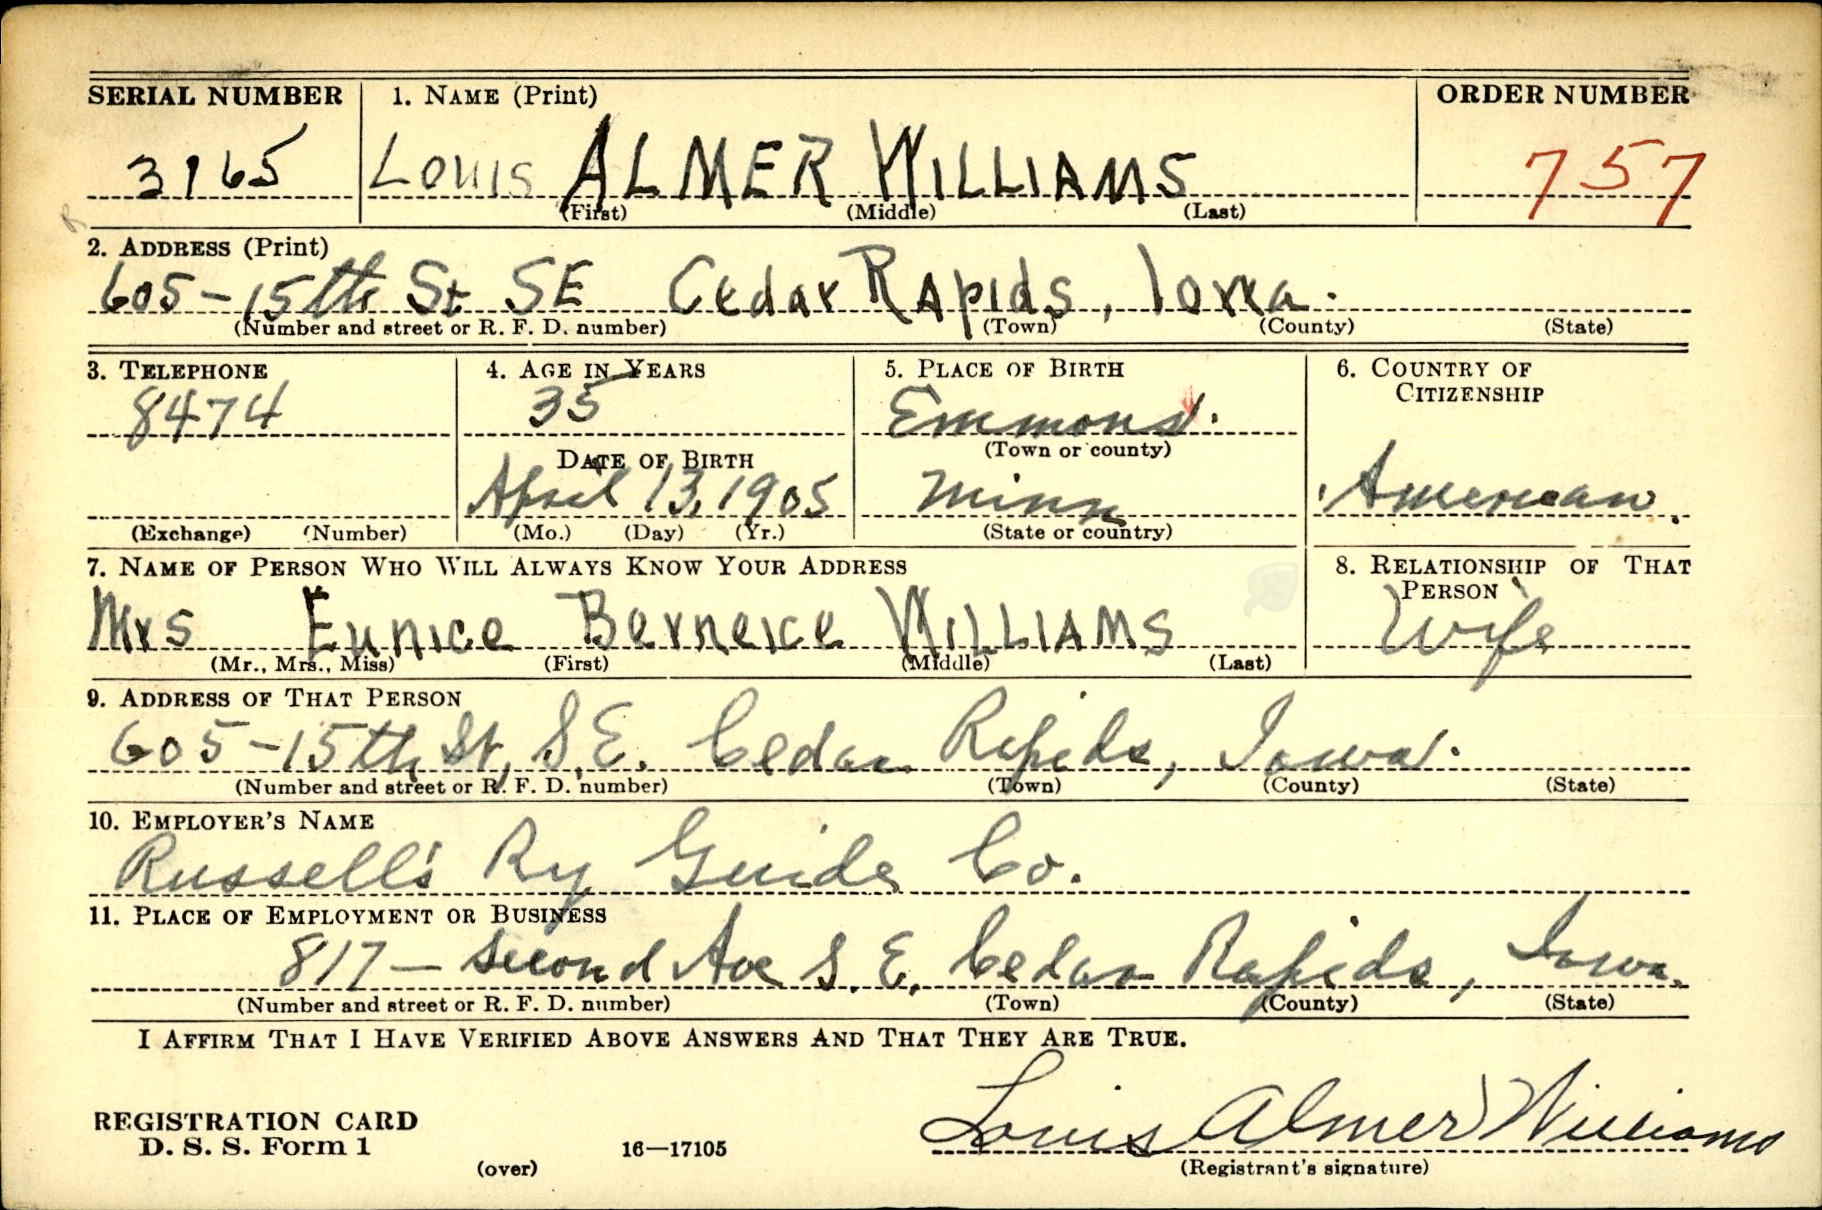 SERIAL NUMBER 1. NAME (Print) ORDER NUMBER
3165 Louis ALMER WILLIAMS 757
(First) (Middle) (Last)
2. ADDRESS (Print)
605-15th St SE Cedar Rapids, Iowa.
(Number and street or R. F. D. number) (Town) (County) (State)
3. TELEPHONE 4. AGE IN YEARS 5. PLACE OF BIRTH 6. COUNTRY OF CITIZENSHIP
8474 35 Emmons.
(Town or county)
DATE OF BIRTH
April 13, 1905 Minn American.
(Exchange) (Number) (Mo.) (Day) (Yr.) (State or country)
7. NAME OF PERSON WHO WILL ALWAYS KNOW YOUR ADDRESS 8. RELATIONSHIP OF THAT PERSON
Mrs Eunice Berneice WILLIAMS Wife
(Mr., Mrs., Miss) (First) (Middle) (Last)
9. ADDRESS OF THAT PERSON
605-15th St, S.E. Cedar Rapids, Iowa.
(Number and street or R. F. D. number) (Town) (County) (State)
10. EMPLOYER'S NAME
Russell's Ry Guide Co.
11. PLACE OF EMPLOYMENT OR BUSINESS
817 - Second Ave S.E. Cedar Rapids, Iowa.
(Number and street or R. F. D. number) (Town) (County) (State)
I AFFIRM THAT I HAVE VERIFIED ABOVE ANSWERS AND THAT THEY ARE TRUE.
REGISTRATION CARD
D. S. S. Form 1
(over) 16—17105
Louis Almer Williams
(Registrant's signature)